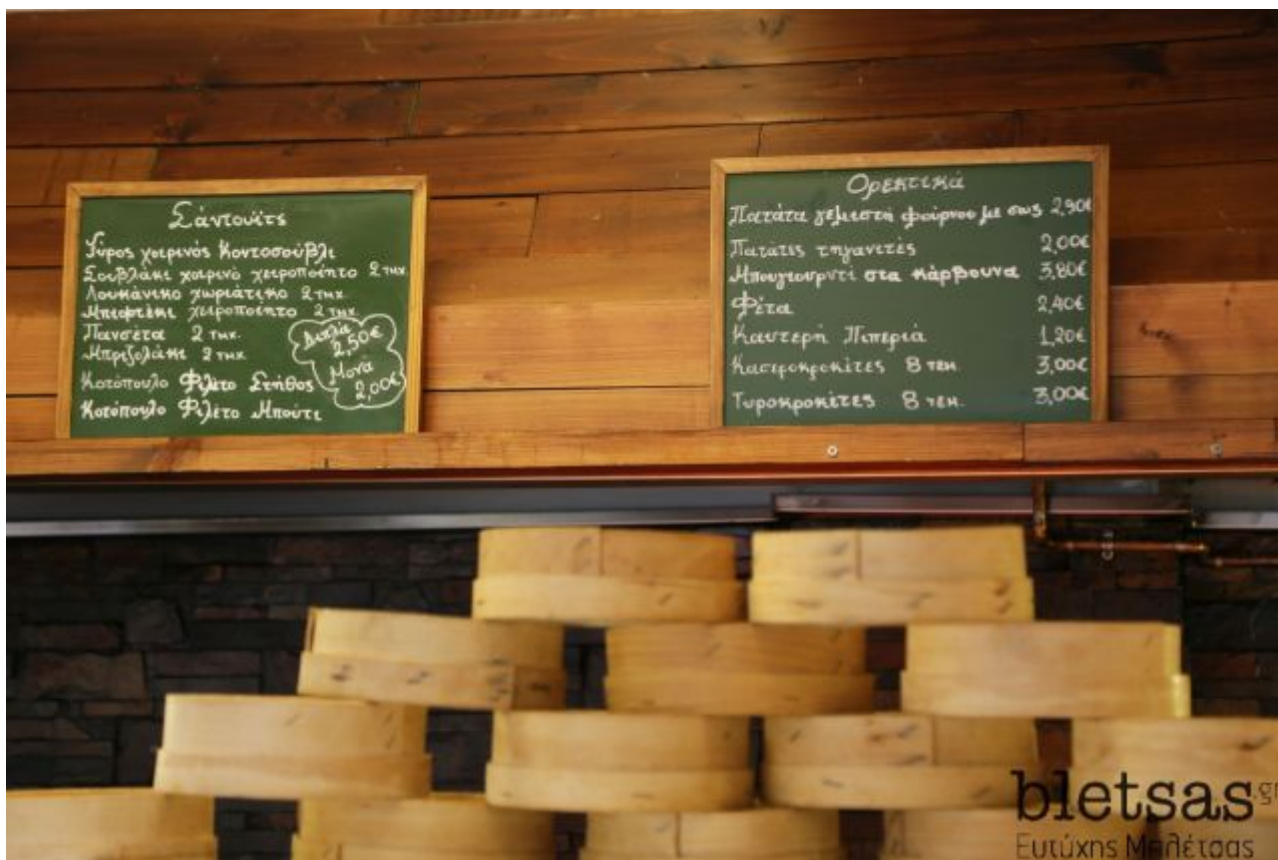 Σάντουϊτς
Γύρος χοιρινός Κοντοσούβλι
Σουβλάκι χοιρινό χειροποίητο 2 τμχ.
Λουκάνικο χωριάτικο 2 τμχ.
Μπιφτέκι χειροποίητο 2 τμχ.
Πανσέτα 2 τμχ.
Μπριζολάκι 2 τμχ.
Κοτόπουλο Φιλέτο Στήθος
Κοτόπουλο Φιλέτο Μπούτι
Διπλά
2,50€
Μονά
2,00€
Ορεκτικά
Πατάτα γεμιστή φούρνου με σως 2,90€
Πατάτες τηγανιτές 2,00€
Μπουγιουρντί στα κάρβουνα 3,80€
Φέτα 2,40€
Καυτερή Πιπεριά 1,20€
Κασεροκροκέτες 8 τεμ. 3,00€
Τυροκροκέτες 8 τεμ. 3,00€
bletsas.gr
Ευτύχης Μπλέτσας